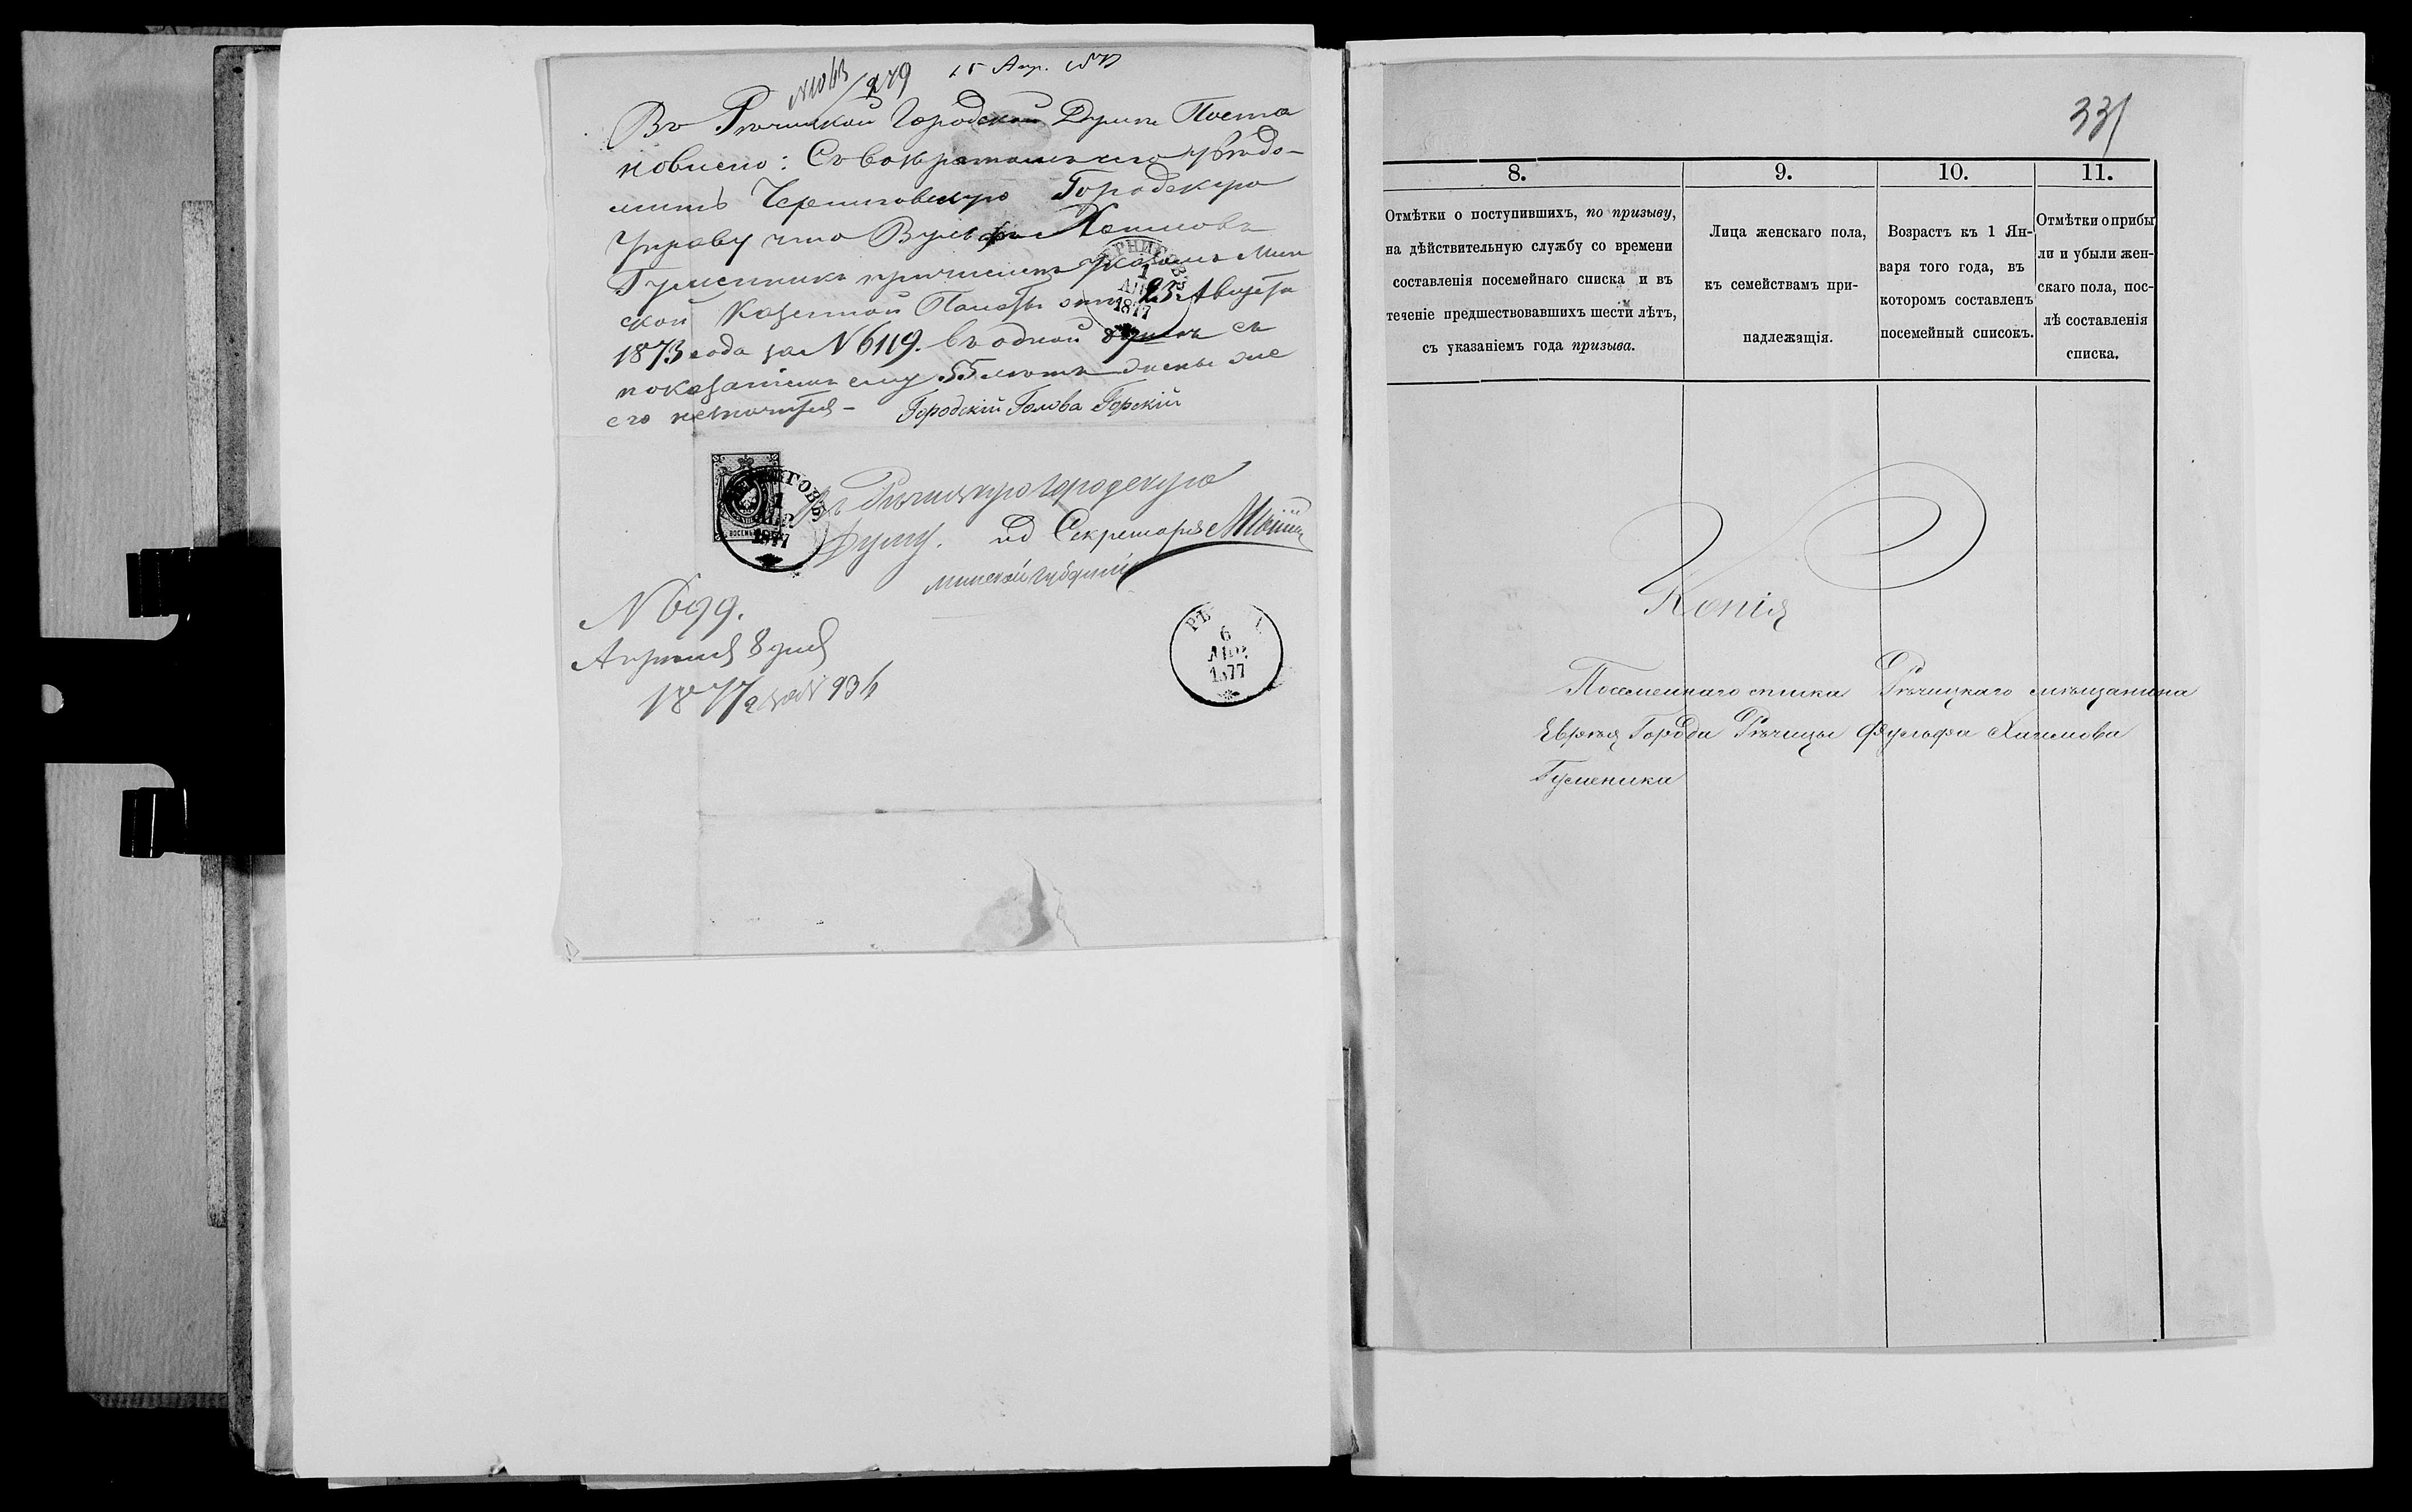 279 15 Апр. 1877
Въ Рѣчицкой Городской Думѣ Поста
новлено: увѣдо-
мить Черниговскую Городскую
Управу что Вульфъ Хаимовъ
Гуменникъ причисленъ указомъ Мин
ской Казенной Палаты отъ 23 Августа
1873 года за N 6119. въ одной душѣ съ
показаніемъ ему 55 лѣтъ
его Городскій Голова Горскій
ЧЕРНИГОВЪ
1
АПР
1877
ЧЕРНИГОВЪ
1
АПР
1877
ВОСЕМЬ
Въ Рѣчицкую Городскую
Думу. Секретаря
Минской губерніи
N 699.
Апрѣля 8 дня
1877 года N 934
6
АПР.
1877
331
8. 9. 10. 11.
Отмѣтки о поступившихъ, по призыву,
на дѣйствительную службу со времени
составленія посемейнаго списка и въ
теченіе предшествовавшихъ шести лѣтъ,
съ указаніемъ года призыва.
Лица женскаго пола,
къ семействамъ при-
надлежащія.
Возрастъ къ 1 Ян-
варя того года, въ
которомъ составленъ
посемейный списокъ.
Отмѣтки о прибы
ли и убыли жен-
скаго пола, пос-
лѣ составленія
списка.
Копія
Посемейнаго списка Рѣчицкаго мѣщанина
Еврея Города Рѣчицы Вульфа Хаимова
Гуменика